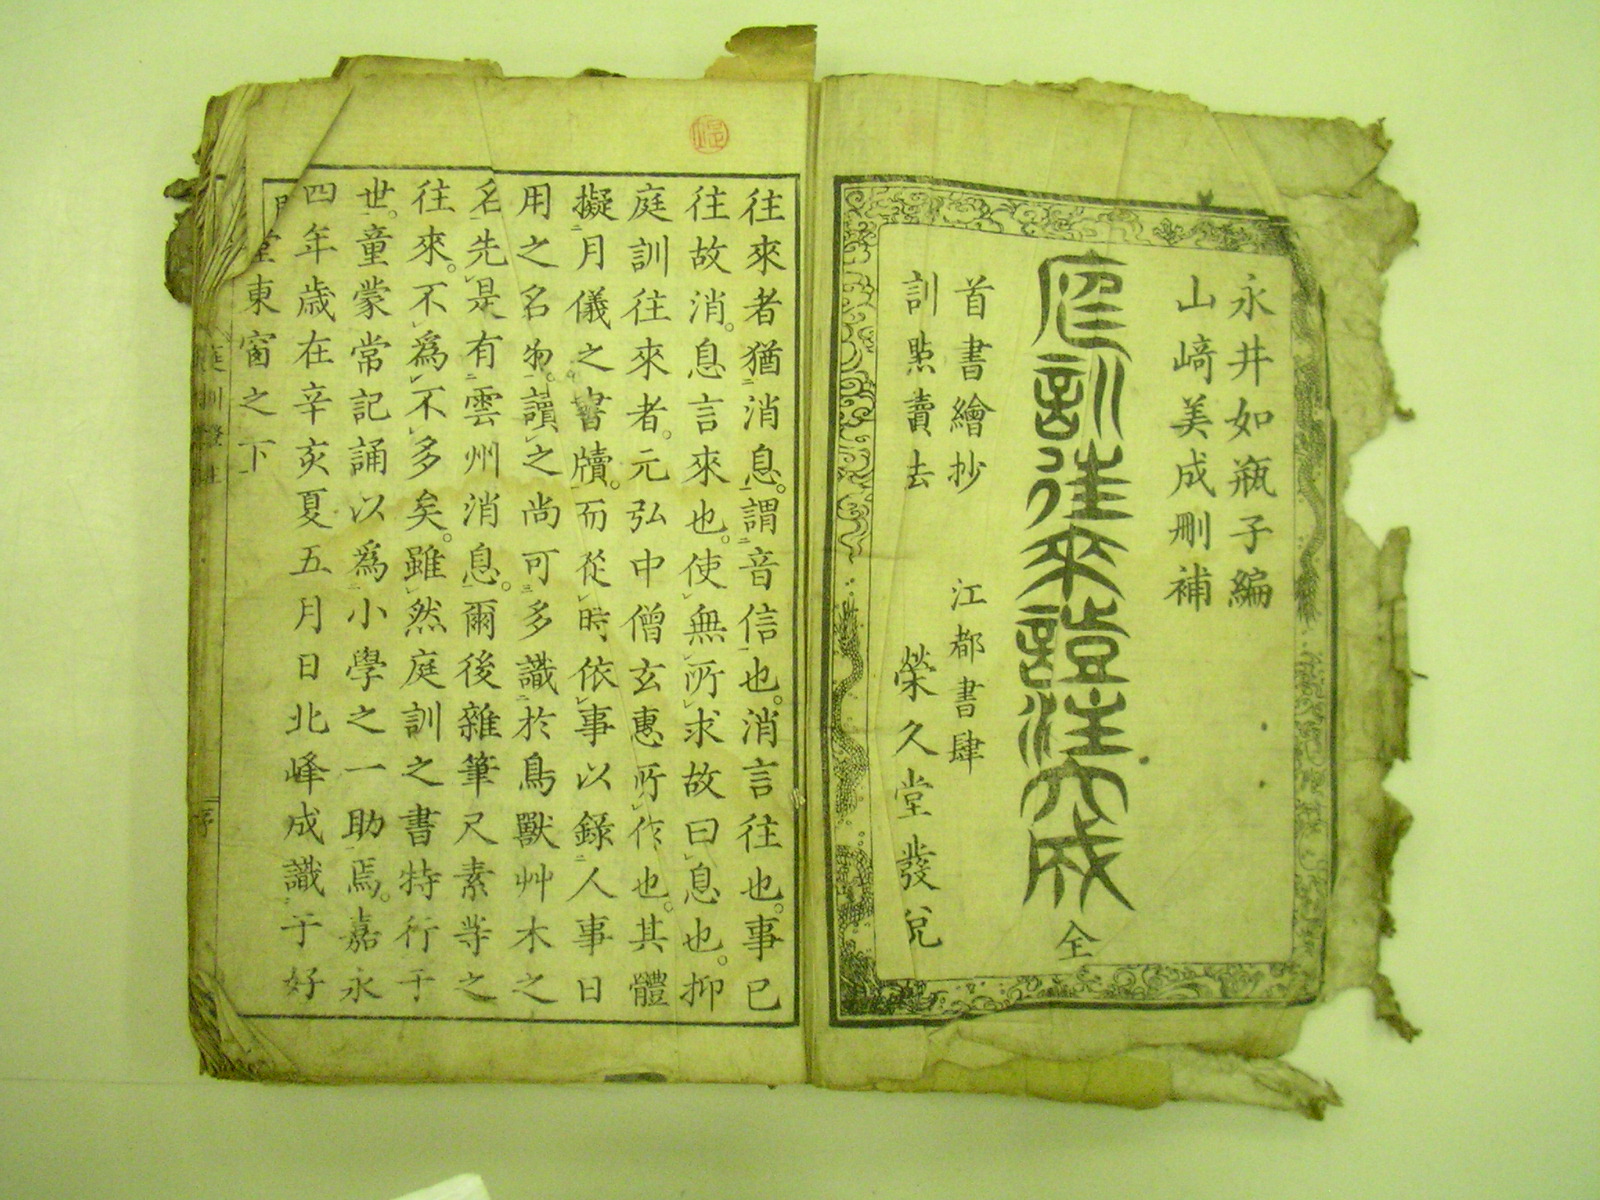 永井如瓶子編
山﨑美成刪補
庭訓往來證注大成 全
首書繪抄 江都書肆
訓點賣去 榮久堂發兌
往來者猶消息。謂音信也。消言往也。事已
往故消。息言來也。使無所求故曰息也。抑
庭訓往來者。元弘中僧玄惠所作也。其體
擬月儀之書牘。而從時依事以錄人事日
用之名物。讀之尚可多識於鳥獸艸木之
名先是有雲州消息。爾後雜筆尺素等之
往來。不為不多矣。雖然庭訓之書特行于
世。童蒙常記誦以為小學之一助焉。嘉永
四年歳在辛亥夏五月日北峰成識于好
堂東窗之下
庭訓證注
序